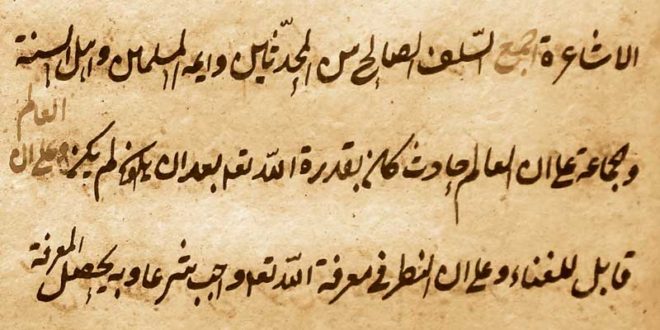 الاشاعرة اجمع السلف الصالح من المحدثين وايمة المسلمين واهل السنة
والجماعة على ان العالم حادث كان بقدرة الله تعه بعد ان لم يكن وعلى ان العالم
قابل للفناء وعلى ان النظر في معرفة الله تعه واجب شرعا وبه يحصل المعرفة